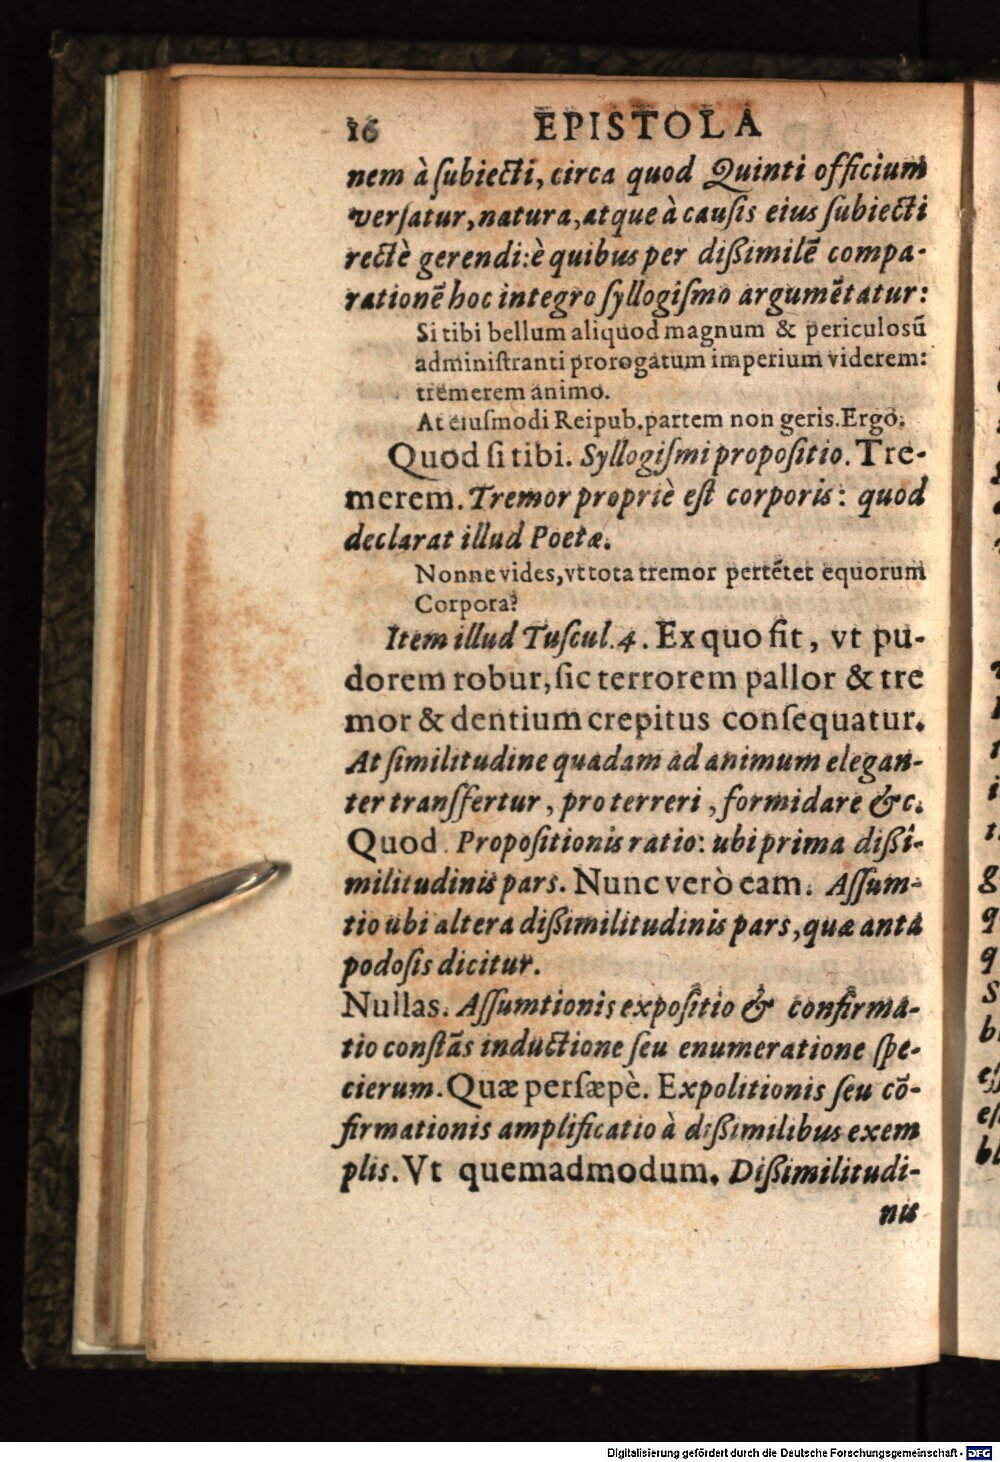 16 EPISTOLA
nem à ſubiecti, circa quod Quinti officium
verſatur, natura, atque à cauſis eius ſubiecti
rectè gerendi: è quibus per dißimilē compa-
rationē hoc integro ſyllogiſmo argumētatur:
Si tibi bellum aliquod magnum & periculosū
adminiſtranti prorogatum imperium viderem:
tremerem animo.
At eiuſmodi Reipub. partem non geris. Ergo.
Quod ſi tibi. Syllogiſmi propoſitio. Tre-
merem. Tremor propriè eſt corporis: quod
declarat illud Poetæ.
Nonne vides, vt tota tremor pertētet equorum
Corpora?
Item illud Tuſcul. 4. Ex quo fit, vt pu-
dorem robur, ſic terrorem pallor & tre
mor & dentium crepitus conſequatur.
At ſimilitudine quadam ad animum elegan-
ter tranſfertur, pro terreri, formidare &c.
Quod. Propoſitionis ratio: ubi prima dißi-
militudinis pars. Nunc verò eam. Aſſum-
tio ubi altera dißimilitudinis pars, quæ anta
podoſis dicitur.
Nullas. Aſſumtionis expoſitio & confirma-
tio conſtās inductione ſeu enumeratione ſpe-
cierum. Quæ perſæpè. Expolitionis ſeu cō-
firmationis amplificatio à dißimilibus exem
plis. Vt quemadmodum. Dißimilitudi-
nis
Digitalisierung gefördert durch die Deutsche Forschungsgemeinschaft - DFG